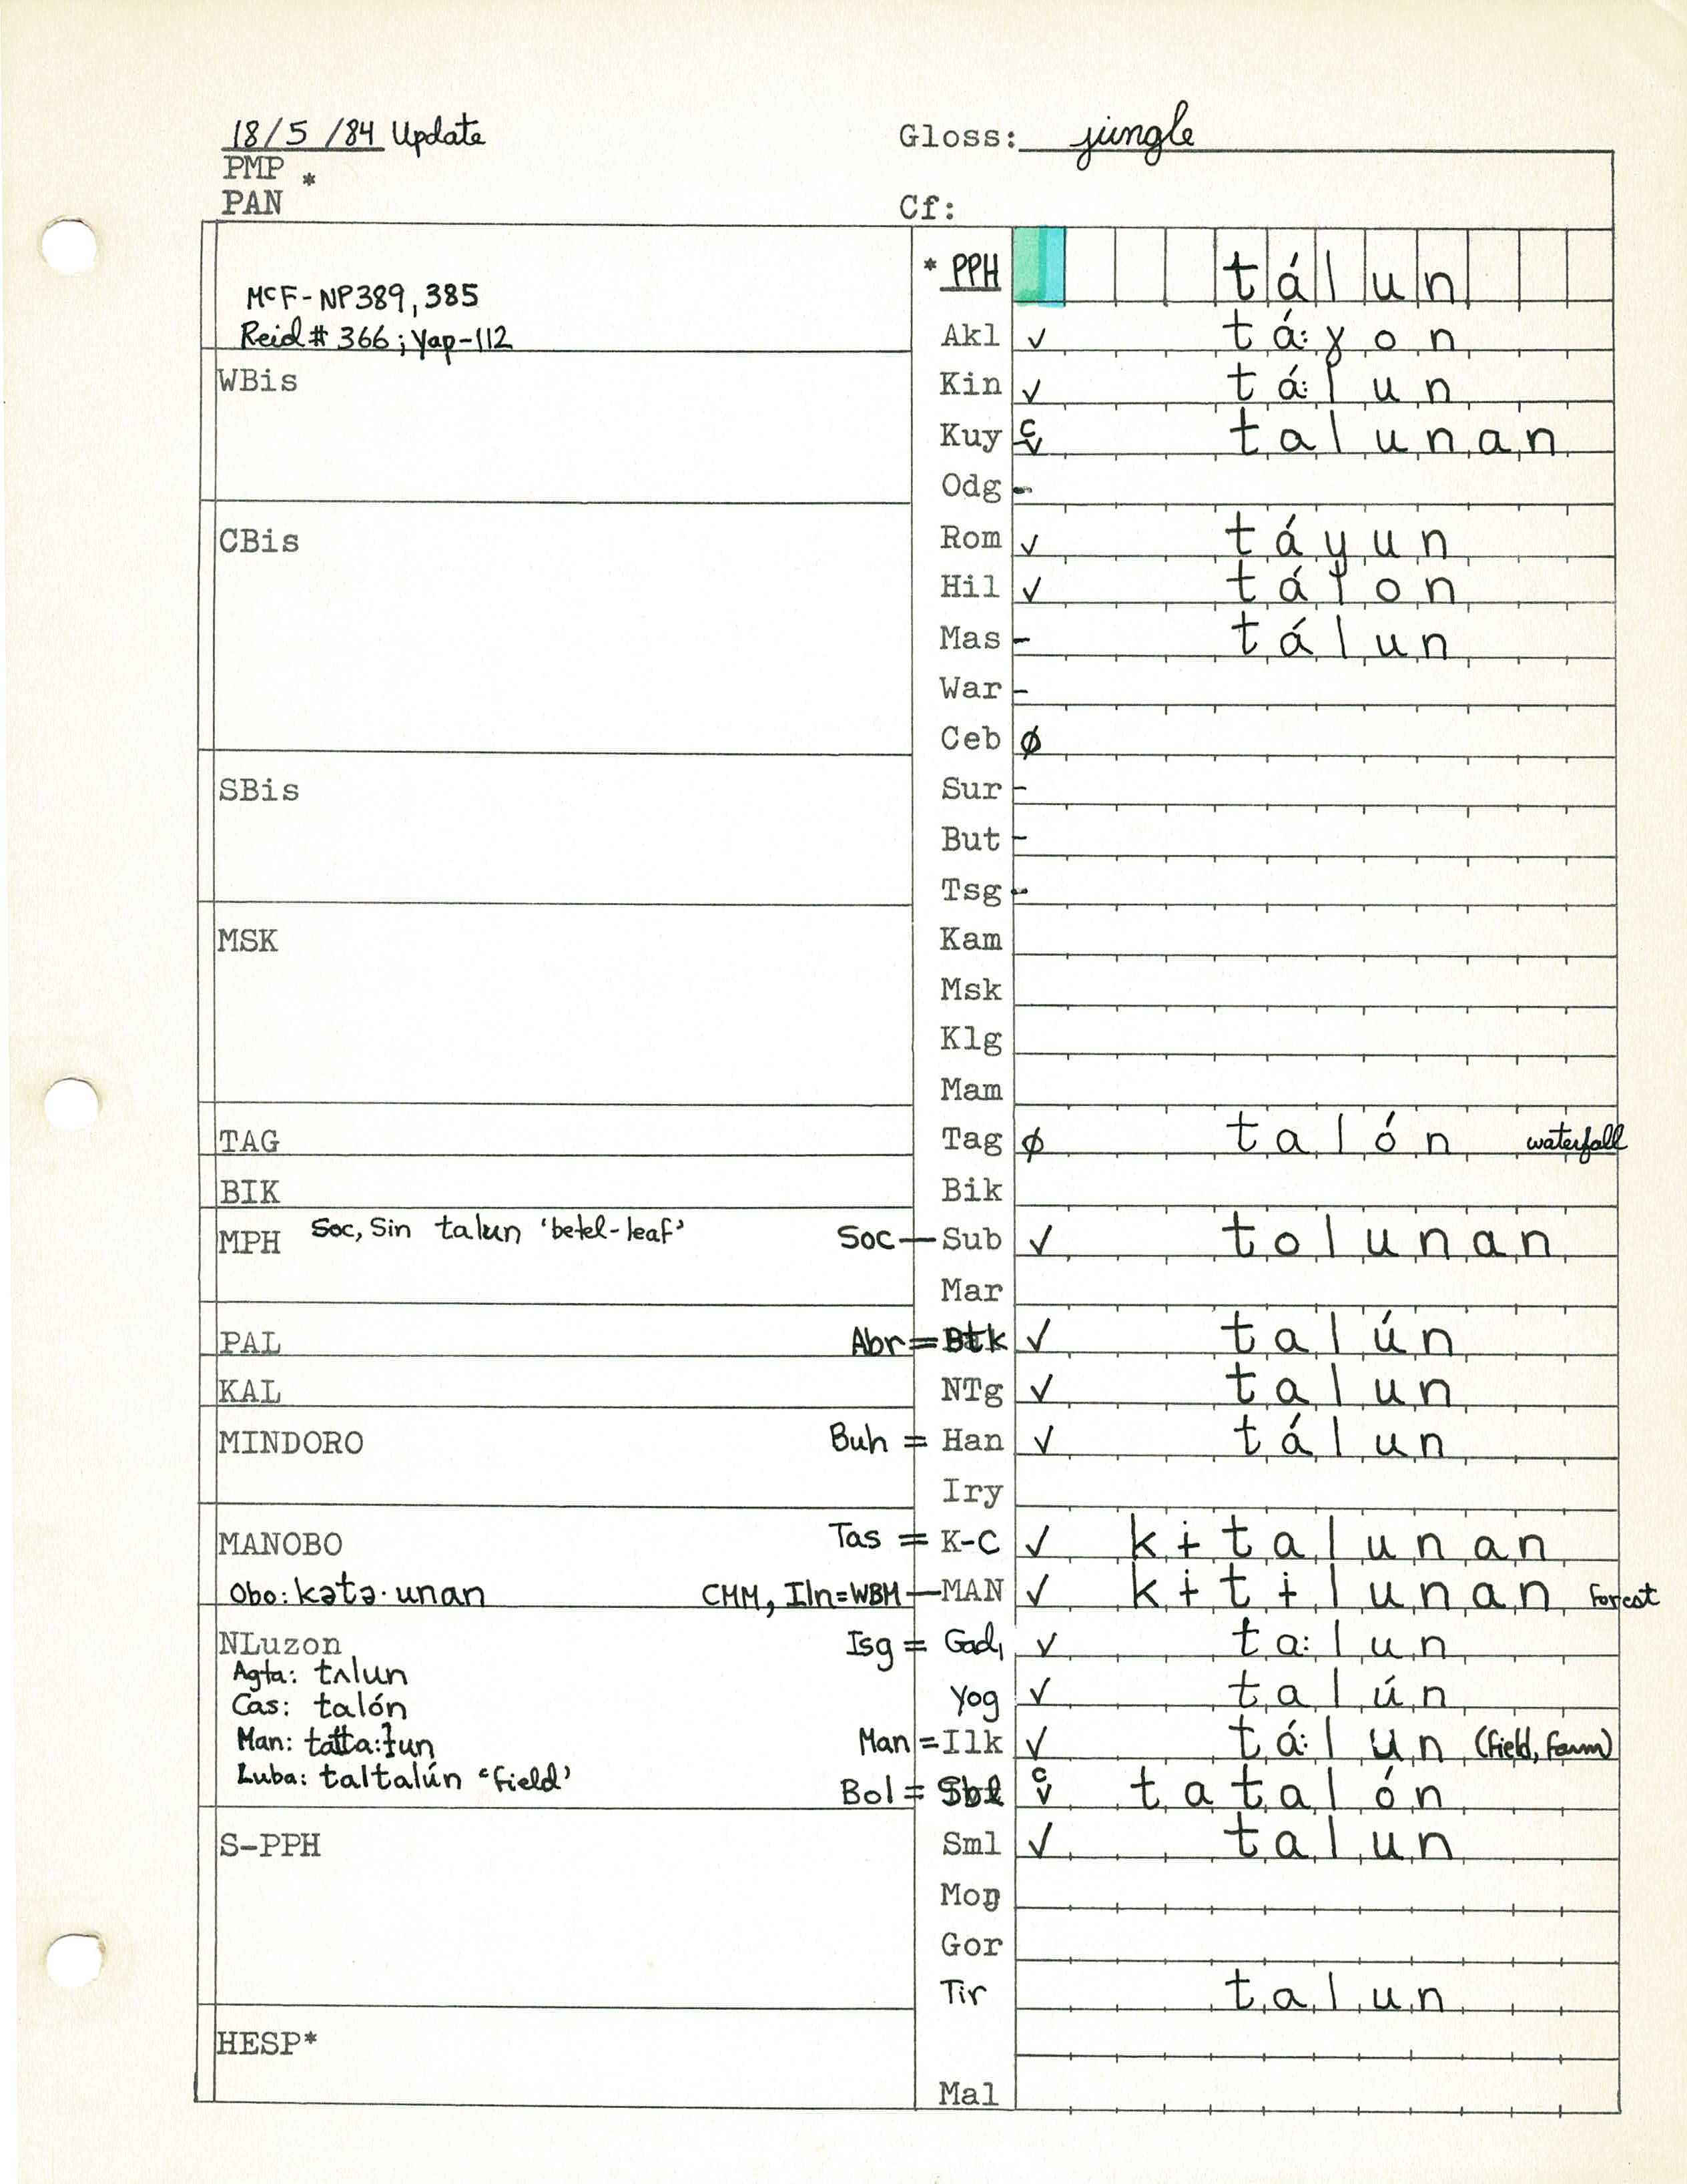 18/5/84 Update Gloss: jungle
PMP *
PAN Cf:
* PPH tálun
McF-NP389, 385
Reid# 366; Yap-112 Akl ✓ tá:ɣon
WBis Kin ✓ tá:lun
Kuy c✓ talunan
Odg -
CBis Rom ✓ táyun
Hil ✓ tálon
Mas - tálun
War -
Ceb ϕ
SBis Sur -
But -
Tsg -
MSK Kam
Msk
Klg
Mam
TAG Tag ϕ talón waterfall
BIK Bik
MPH Soc, Sin talun ‘betel-leaf’ Soc — Sub ✓ tolunan
Mar
PAL Abr = Btk ✓ talún
KAL NTg ✓ talun
MINDORO Buh = Han ✓ tálun
Iry
MANOBO Tas = K-C ✓ kɨtalunan
Obo: kətə·unan CMM, Iln=WBM — MAN ✓ kɨtɨlunan forest
NLuzon Isg = Gad, ✓ ta:lun
Agta: tʌlun
Cas: talón Yog ✓ talún
Man: Man = Ilk ✓ tá:lun (field, farm)
Luba: taltalún ‘field’ Bol = Sbl c✓ tatalón
S-PPH Sml ✓ talun
Moŋ
Gor
Tir talun
HESP*
Mal